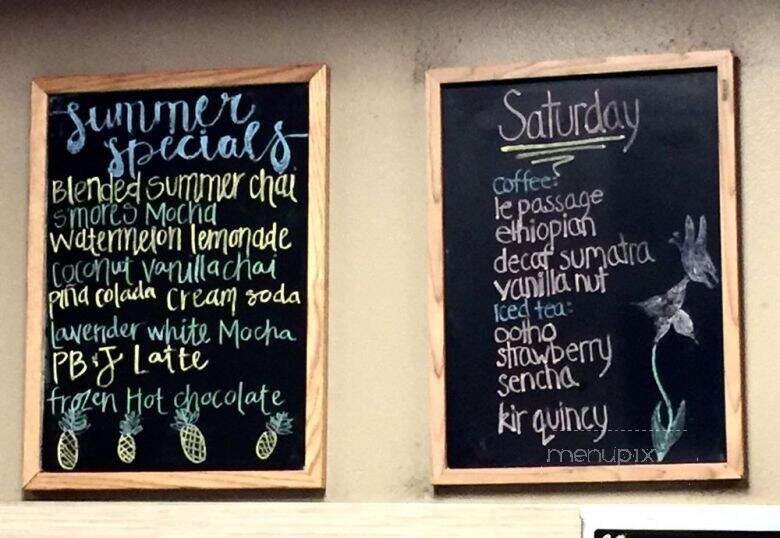 Summer
Specials
Blended summer chai
S'mores Mocha
Watermelon lemonade
Coconut vanilla chai
piña colada cream soda
lavender white Mocha
PB & J Latte
frozen Hot chocolate
Saturday
coffee:
le passage
ethiopian
decaf sumatra
vanilla nut
Iced tea:
ootho
strawberry
sencha
kir quincy
menupix